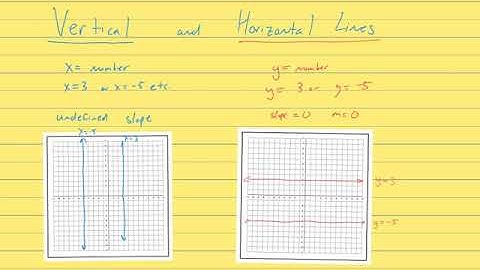 Vertical and Horizontal Lines
x = number
x=3 or x=-5 etc.
undefined slope
x=-5
x=3
y = number
y = 3 or y = -5
slope = 0 m=0
y=3
y=-5